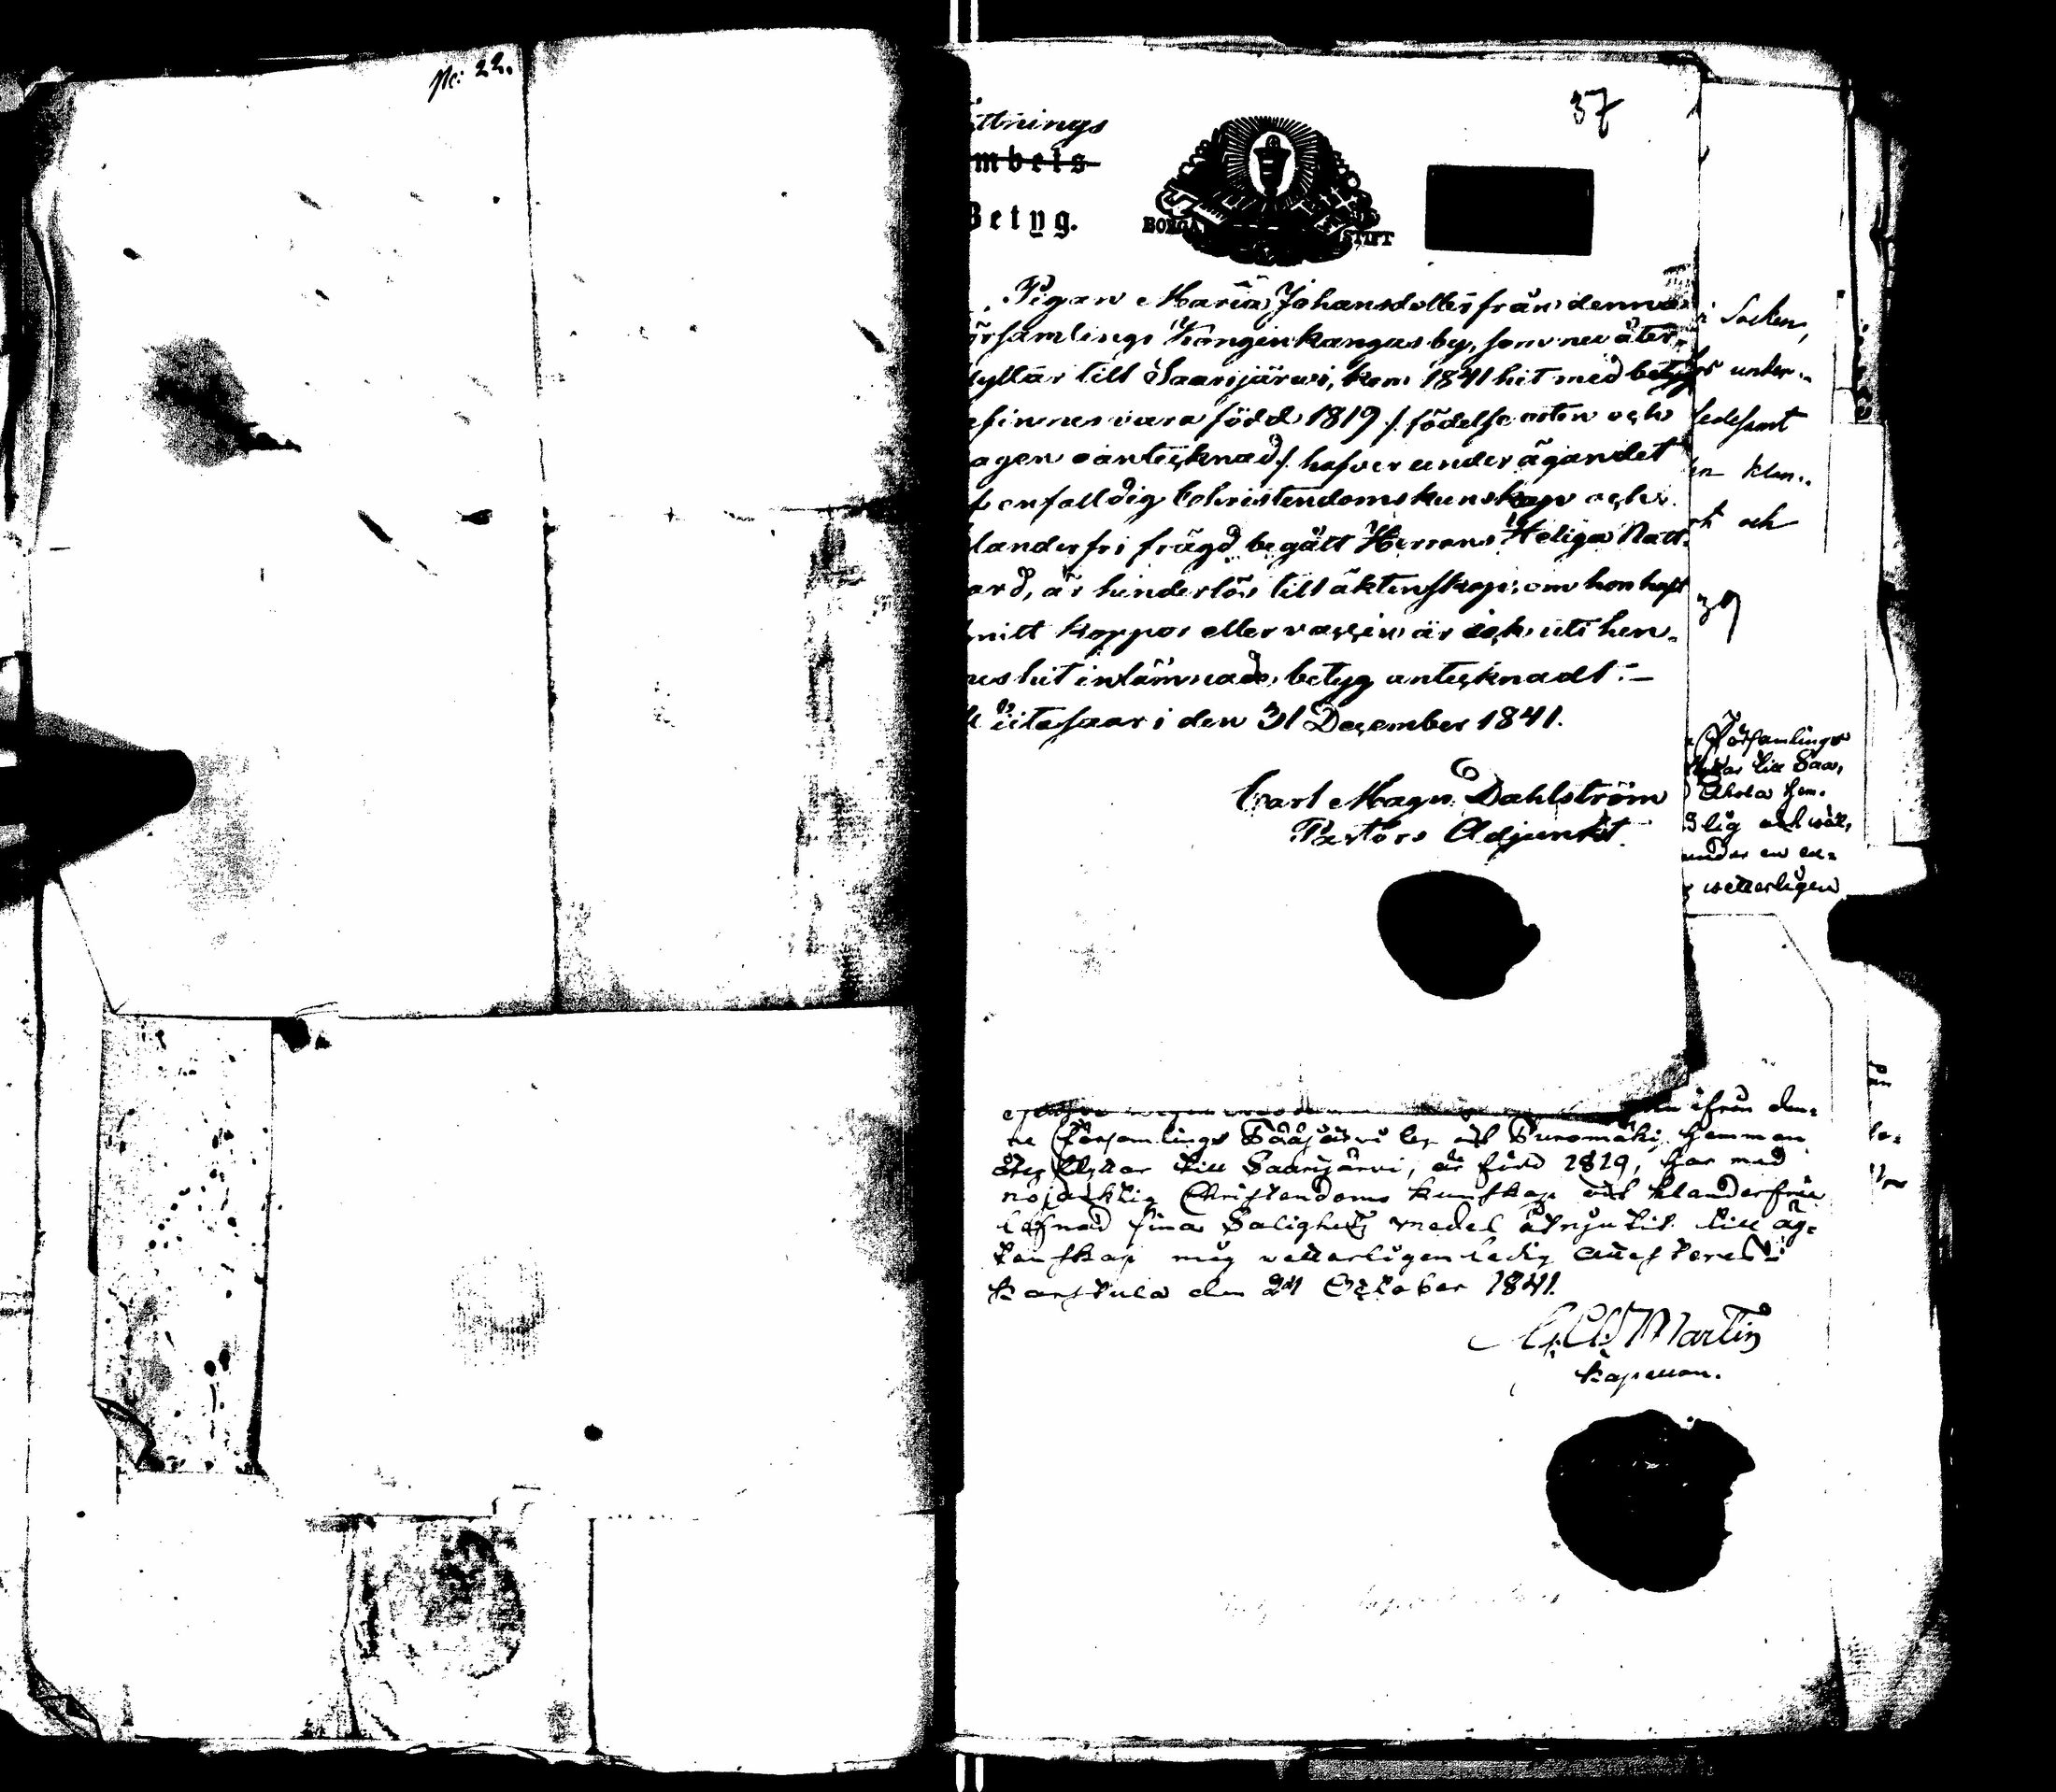 No: 22.
37
ttnings
mbets
Betyg.
BORGÅ STIFT
Pigan Maria Johansdotter från denna
örsamlings Könginkangas by, som nu åter-
lyttar till Saarijärwi, kom 1841 hit med betyg,
efinnes vara född 1819 /: födelse orten och
agen oantecknad :/ hafver under ägandet
enfalldig Christendomskunskap och
landerfri frägd begått Herrans Heliga Natt-
ard, är hinderlös till äktenskap; om hon haft
mitt koppor eller vaccin är ick uti hen-
nes hit inlämnade betyg antecknadt:-
iitasaari den 31 December 1841.
Carl Magn. Dahlström
Pastors Adjunkt.
Socken,
under-
ledesamt
klan-
och
39
Församlings
till Saa,
Ahola hem-
lig och wäl,
under en en-
wetterligen
ifrån den-
ne Församlings Pääjärvi by och Puromäki hemman
åter flyttar till Saarijärvi, är född 1819, har med
nöjaktig Christendoms kunskap och klanderfrie
lefnad sina Salighets medel åtnjutit till äg-
tenskap mig vetterligen ledig attesteres:
Karstula den 24 October 1841.
Martin
Kapellan.